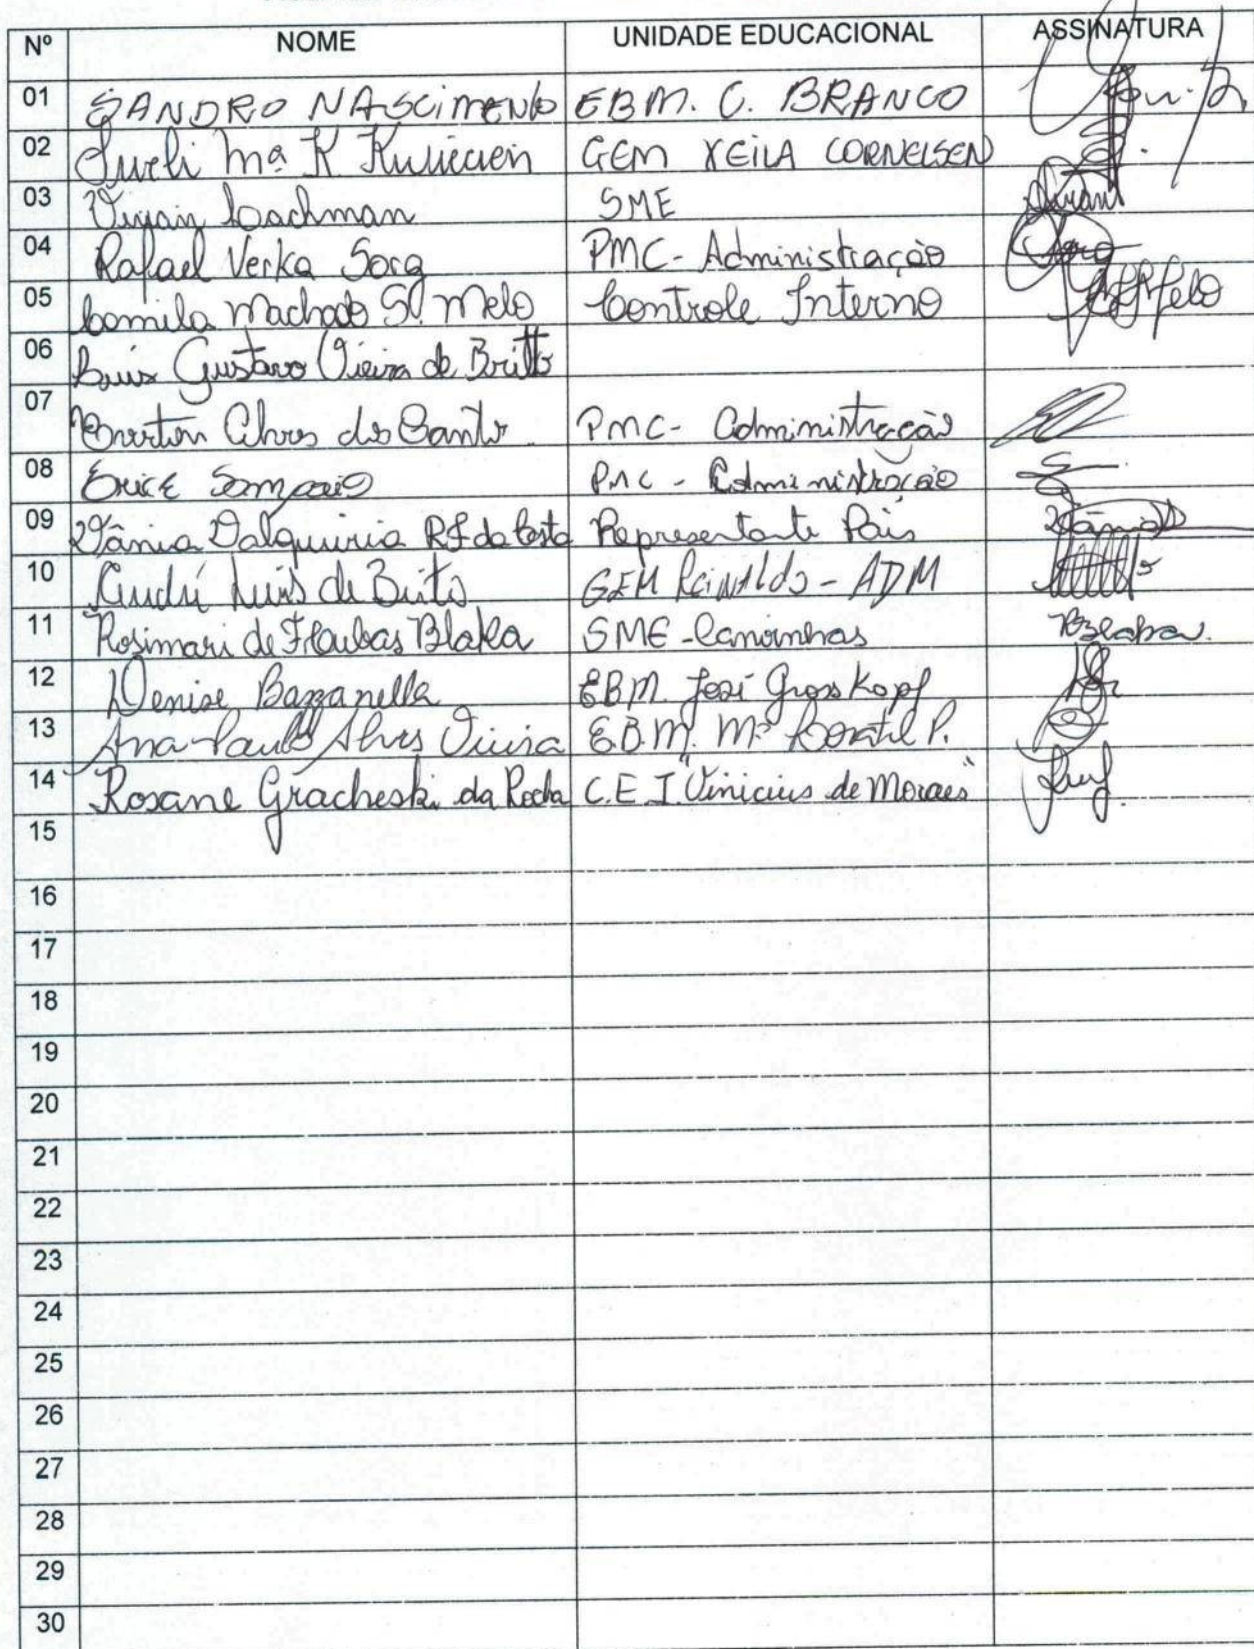 Nº NOME UNIDADE EDUCACIONAL ASSINATURA
01 SANDRO NASCIMENTO EBM. C. BRANCO
02 Sueli Mª K GEM XEILA CORNELSEN
03 Vivian Lachman SME
04 Rafael Verka Sorg PMC - Administração
05 Camila Machado S. Melo Controle Interno
06 Luis Gustavo Vieira de Britto
07 Everton Alves dos Santos PMC - Administração
08 Erick Sampaio PMC - Administração
09 Vânia Valquiria RF da Costa Representante Pais
10 André Luis de Brito GEM Reinaldo - ADM
11 Rosimari de F Blaka SME - Canoinhas
12 Denise Bazzanella EBM. José Grosskopf
13 Ana Paula Alves Vieira E.B.M. Mª P.
14 Rosane Gracheski da Rocha C.E.I. "Vinicius de Moraes"
15
16
17
18
19
20
21
22
23
24
25
26
27
28
29
30